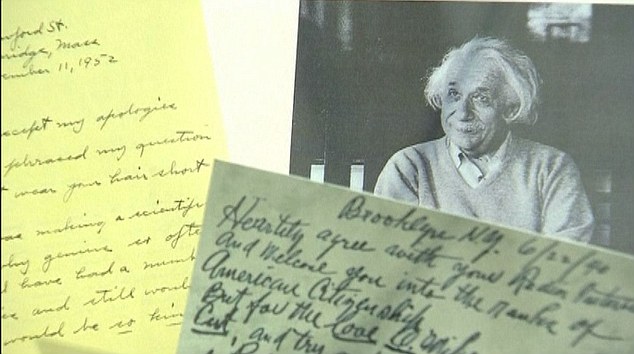 wford St.
ridge, Mass
ember 11, 1952
accept my apologies
phrased my question
wear your hair short
was making a scientifi
why genius so ofte
have had a num
and still woul
would be so kin
Brooklyn N.Y. 6/22/40
Heartily agree with your Radio
and Welcome you into the ranks of
American Citizenship.
But for the Love O Mike
Cut, and